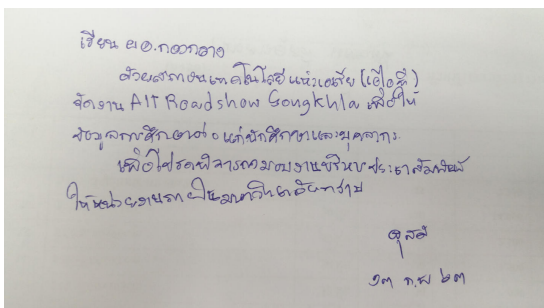 เรียน ผอ.กองกลาง
ด้วยสถาบันเทคโนโลยีแห่งเอเชีย (เอไอที)
จัดงาน AIT Roadshow Songkhla เพื่อให้
ข้อมูลการศึกษาต่อแก่นักศึกษาและบุคลากร
เพื่อโปรดพิจารณามอบงานบริหารประชาสัมพันธ์
ให้หน่วยงานภายในมหาวิทยาลัยทราบ
๑๓ ก.พ ๖๓